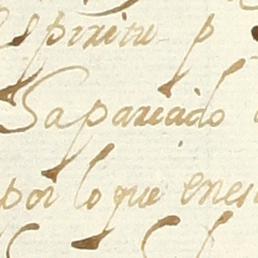 Espiritu p
Sapariado
por lo que enes